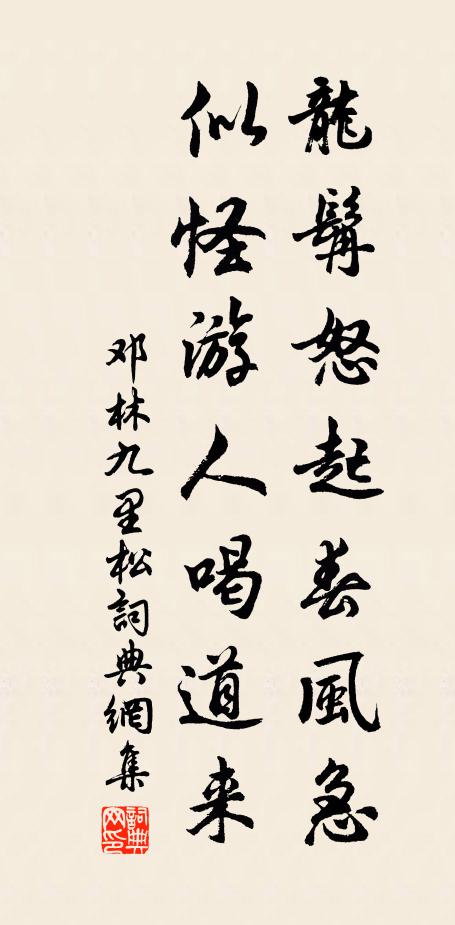 龍髯怒起春風急
似怪游人喝道来
邓林九里松詞典網集
詞典网印